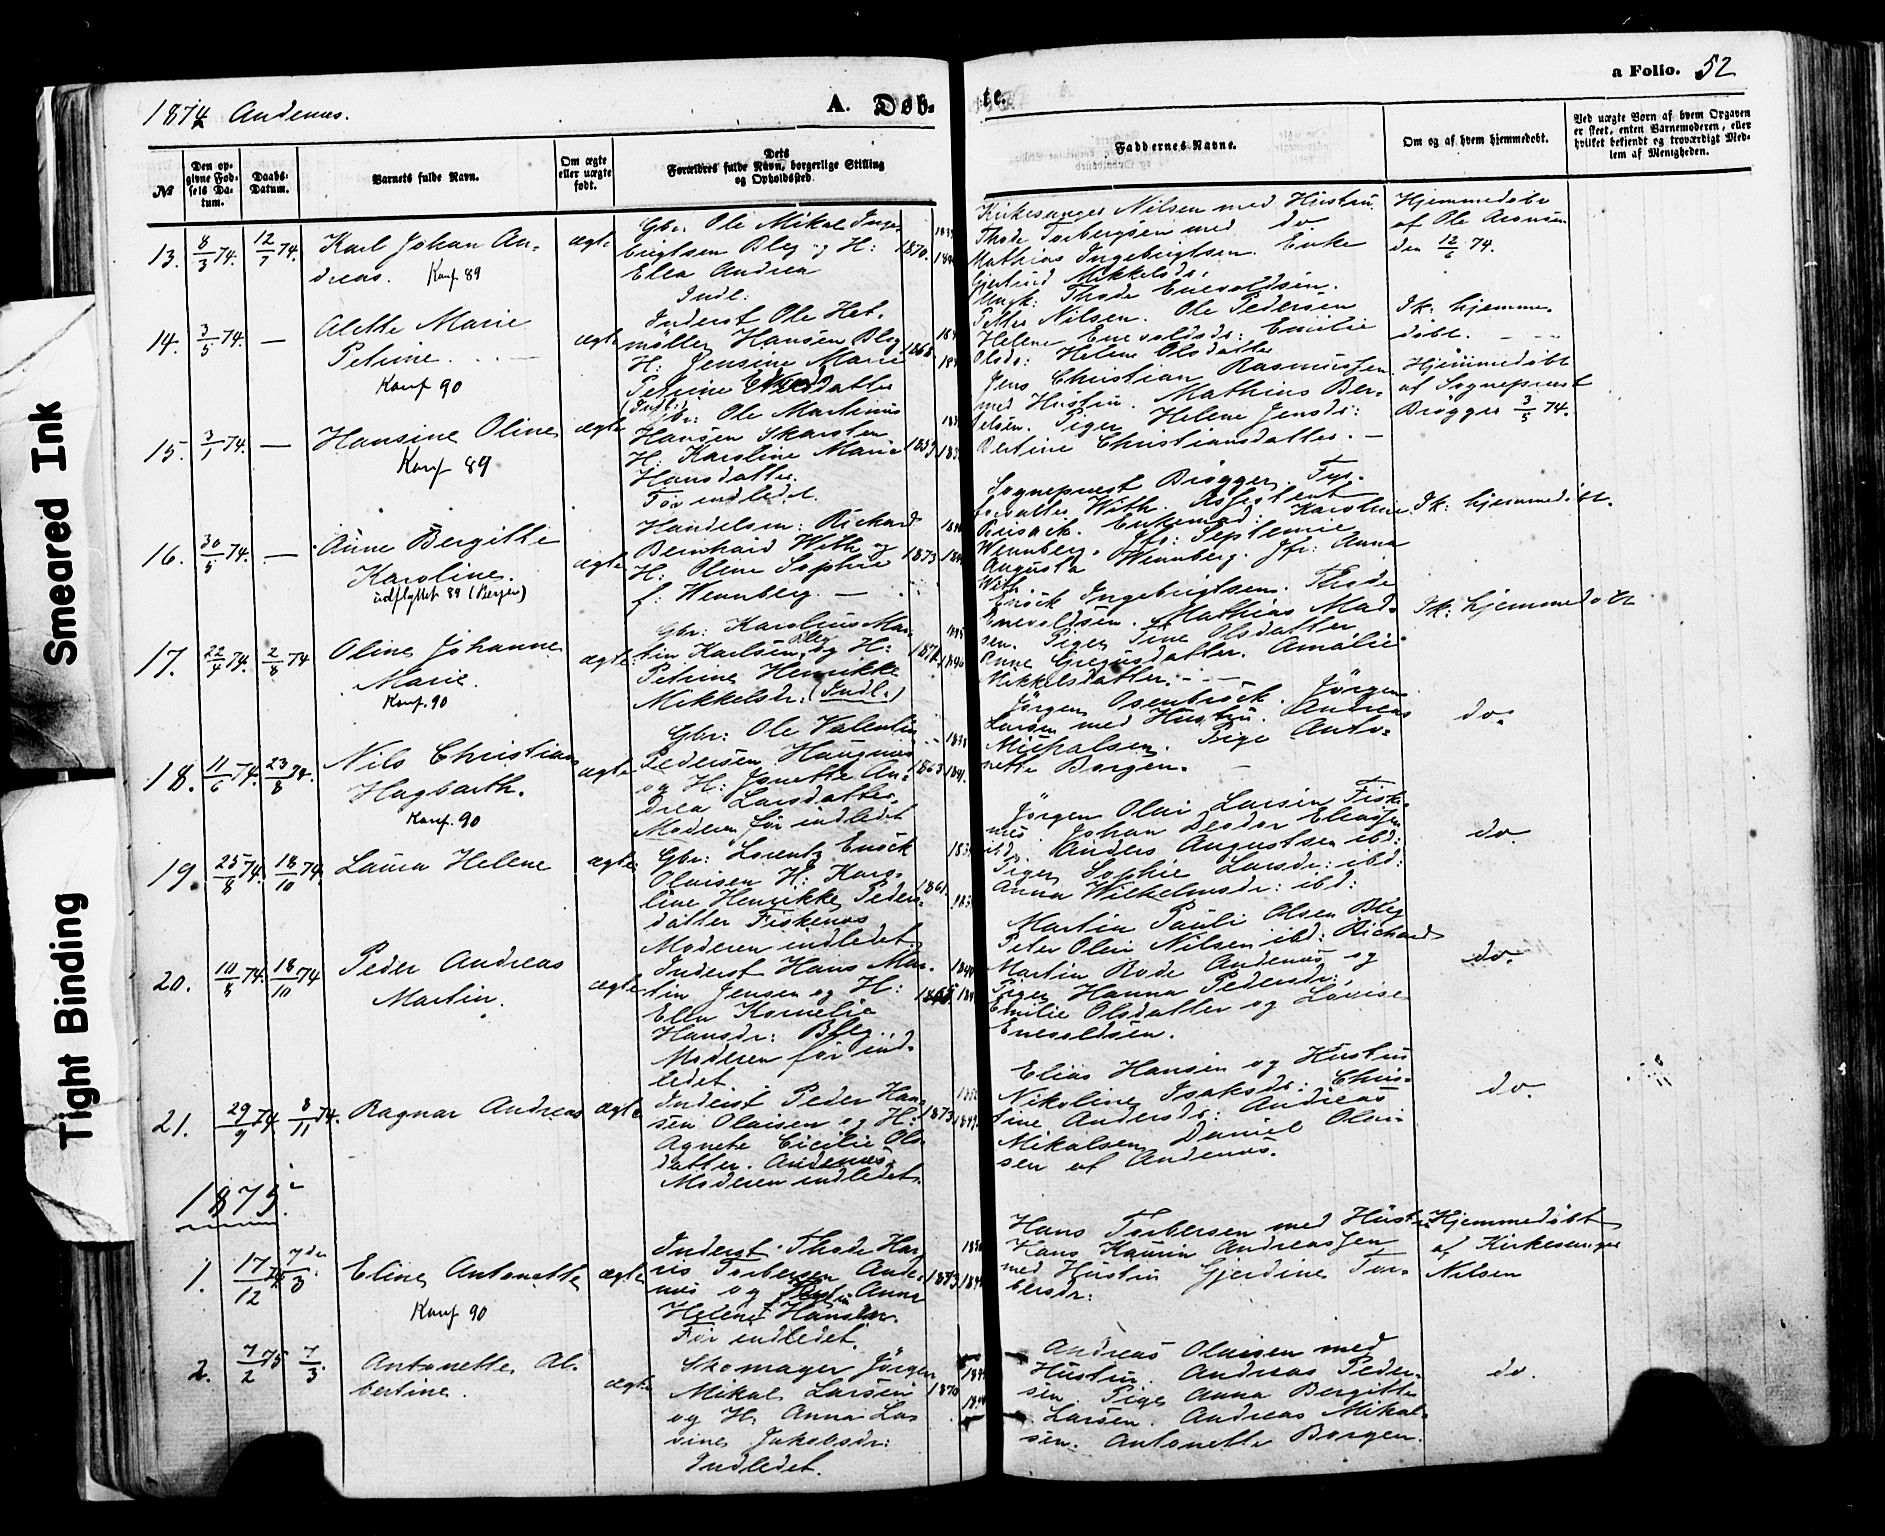 1874 Andenæs.
A. Døb-
te.
a Folio. 52
№
Den op-
givne Fød-
sels Da-
tum.
Daabs-
Datum.
Barnets fulde Navn.
Om ægte
eller uægte
født.
Dets
Forældres fulde Navn, borgerlige Stilling
og Opholdssted.
Faddernes Navne.
Om og af hvem hjemmedøbt.
Ved uægte Børn af hvem Opgaven
er skeet, enten Barnemoderen, eller
hvilket bekjendt og troværdigt Med-
lem af Menigheden.
13. 8/3 74. 12/7 74. Karl Johan An-
dreas. Konf 89
ægte
Gbr: Ole Mikal Inge-
brigtsen Bleg og H:
Ella Andrea
Indl:
1870.
Kirkesanger Nilsen med Hustru
Thode Torbergsen med do
Mathias Ingebrigtsen. Enke
Gjertrud Mikkelsdr.
Hjemmedøbt
af Ole Aronsen
den 12/6 74.
14. 3/5 74. —
Alette Marie
Petrine.
Konf 90
ægte
Inderst Ole Het-
møller Hansen Bleg
H. Jensine Marie
Petrine
(Indl:)
Ungk: Thode Enevoldsen.
Petter Nilsen. Ole Pedersen
Helene Enevoldsdr: Emilie
Olsdr: Helene Olsdatter
Ik: hjemme-
døbt.
15. 3/1 74. —
Hansine Oline
Konf 89
ægte
Gbr: Ole Martinus
Hansen Skarsten
H. Karoline Marie
Hansdatter.
Før indledet.
1859
Jens Christian Rasmussen
med Hustru. Mathias Ber-
telsen. Piger Helene Jensdr:
Bertine Christiansdatter. —
Hjemmedøbt
af Sognepræst
Brøgger 3/5 74.
16. 30/5 74. —
Anne Bergitte
Karoline.
udflyttet 89 (Bergen)
ægte
Handelsm: Richard
Bernhard With og
H. Oline Sophie
f: Wennberg. —
1873
Sognepræst Brøgger. Fyr-
forvalter With. Assistent
Enkemad: Karoline
Wennberg. Jfr: Septemie
Augusta Wennberg. Jfr: Anna
With
Ik: hjemmedøbt.
17. 22/4 74. 2/8 74
Oline Johanne
Marie.
Konf. 90
ægte
Gbr: Karolius Mar-
tin Karlsen Bleg og H:
Petrine Henrikke
Mikkelsdr. (Indl.)
Enock Ingebrigtsen. Thode
Enevoldsen. Mathias Mad-
sen. Piger Tine Olsdatter
Anne Gregusdatter. Amalie
Mikkelsdatter.
Ik: hjemmedøbt
18. 11/6 74. 23/8 74.
Nils Christian
Hagbarth.
Konf. 90
ægte
Gbr: Ole Valentin
Pedersen Haugnæs
og H: Jonette An-
drea Larsdatter
Moderen før indledet
1863
Jørgen Osenbrock. Jørgen
Larsen med Hustru. Andreas
Michalsen. Pige Anto-
nette Borgen.
do.
19 25/8 74. 18/10 74.
Laura Helene
ægte
Gbr: Lorentz Enock
Olaisen H: Karo-
line Henrikke Peders-
datter Fiskenæs
Moderen indledet
1861.
Jørgen Olai Larsen Fiske-
næs Johan Eliassen
ibd. Anders Augustsen ibd:
Piger Sophie Larsdr: ibd:
Anna Wilhelmsdr: ibd:
do.
20. 10/8 74. 18/10 74
Peder Andreas
Martin.
ægte
Inderst Hans Mar-
tin Jensen og H:
Ella Kornelia
Hansdr: Bleg.
Moderen før ind-
ledet.
Martin Pauli Olsen Bleg
Peter Olai Nilsen ibd: Richard
Martin Bode Andenæs og
Piger Hanna Pedersdr:
Emilie Olsdatter og Lovise
Enevoldsen.
do.
21. 29/9 74. 8/11 74.
Ragnar Andreas
ægte
Inderst Peder Han-
sen Olaisen og H:
Agnete Cicilie Ols-
datter. Andenæs.
Moderen indledet.
1873
Elias Hansen og Hustru
Nikoline Isaksdr: Chris-
tine Andersdr: Andreas
Mikalsen Daniel Olai-
sen af Andenæs.
do.
1875.
1. 17/12 74 7de/3.
Eline Antonette
Konf 90
ægte
Inderst Thode Har-
ris Torbersen Ande-
næs og Anna
Helene Hansdr.
Før indledet.
1873.
Hans Torbersen med Hustru
Hans Kaurin Andreassen
med Hustru Gjerdine Tor-
bersdr:
Hjemmedøbt
af Kirkesanger
Nilsen
2. 7/2 75 7/3.
Antonette Al-
bertine.
ægte
Skomager Jørgen
Mikal Larsen
og H. Anna Lo-
vine Jakobsdr:
Indledet.
1870
Andreas Olaisen med
Hustru. Andreas Peder-
sen. Pige Anna Bergitte
Larsen. Andreas Mikal-
sen. Antonette Borgen.
do.
Smeared Ink
Tight Binding